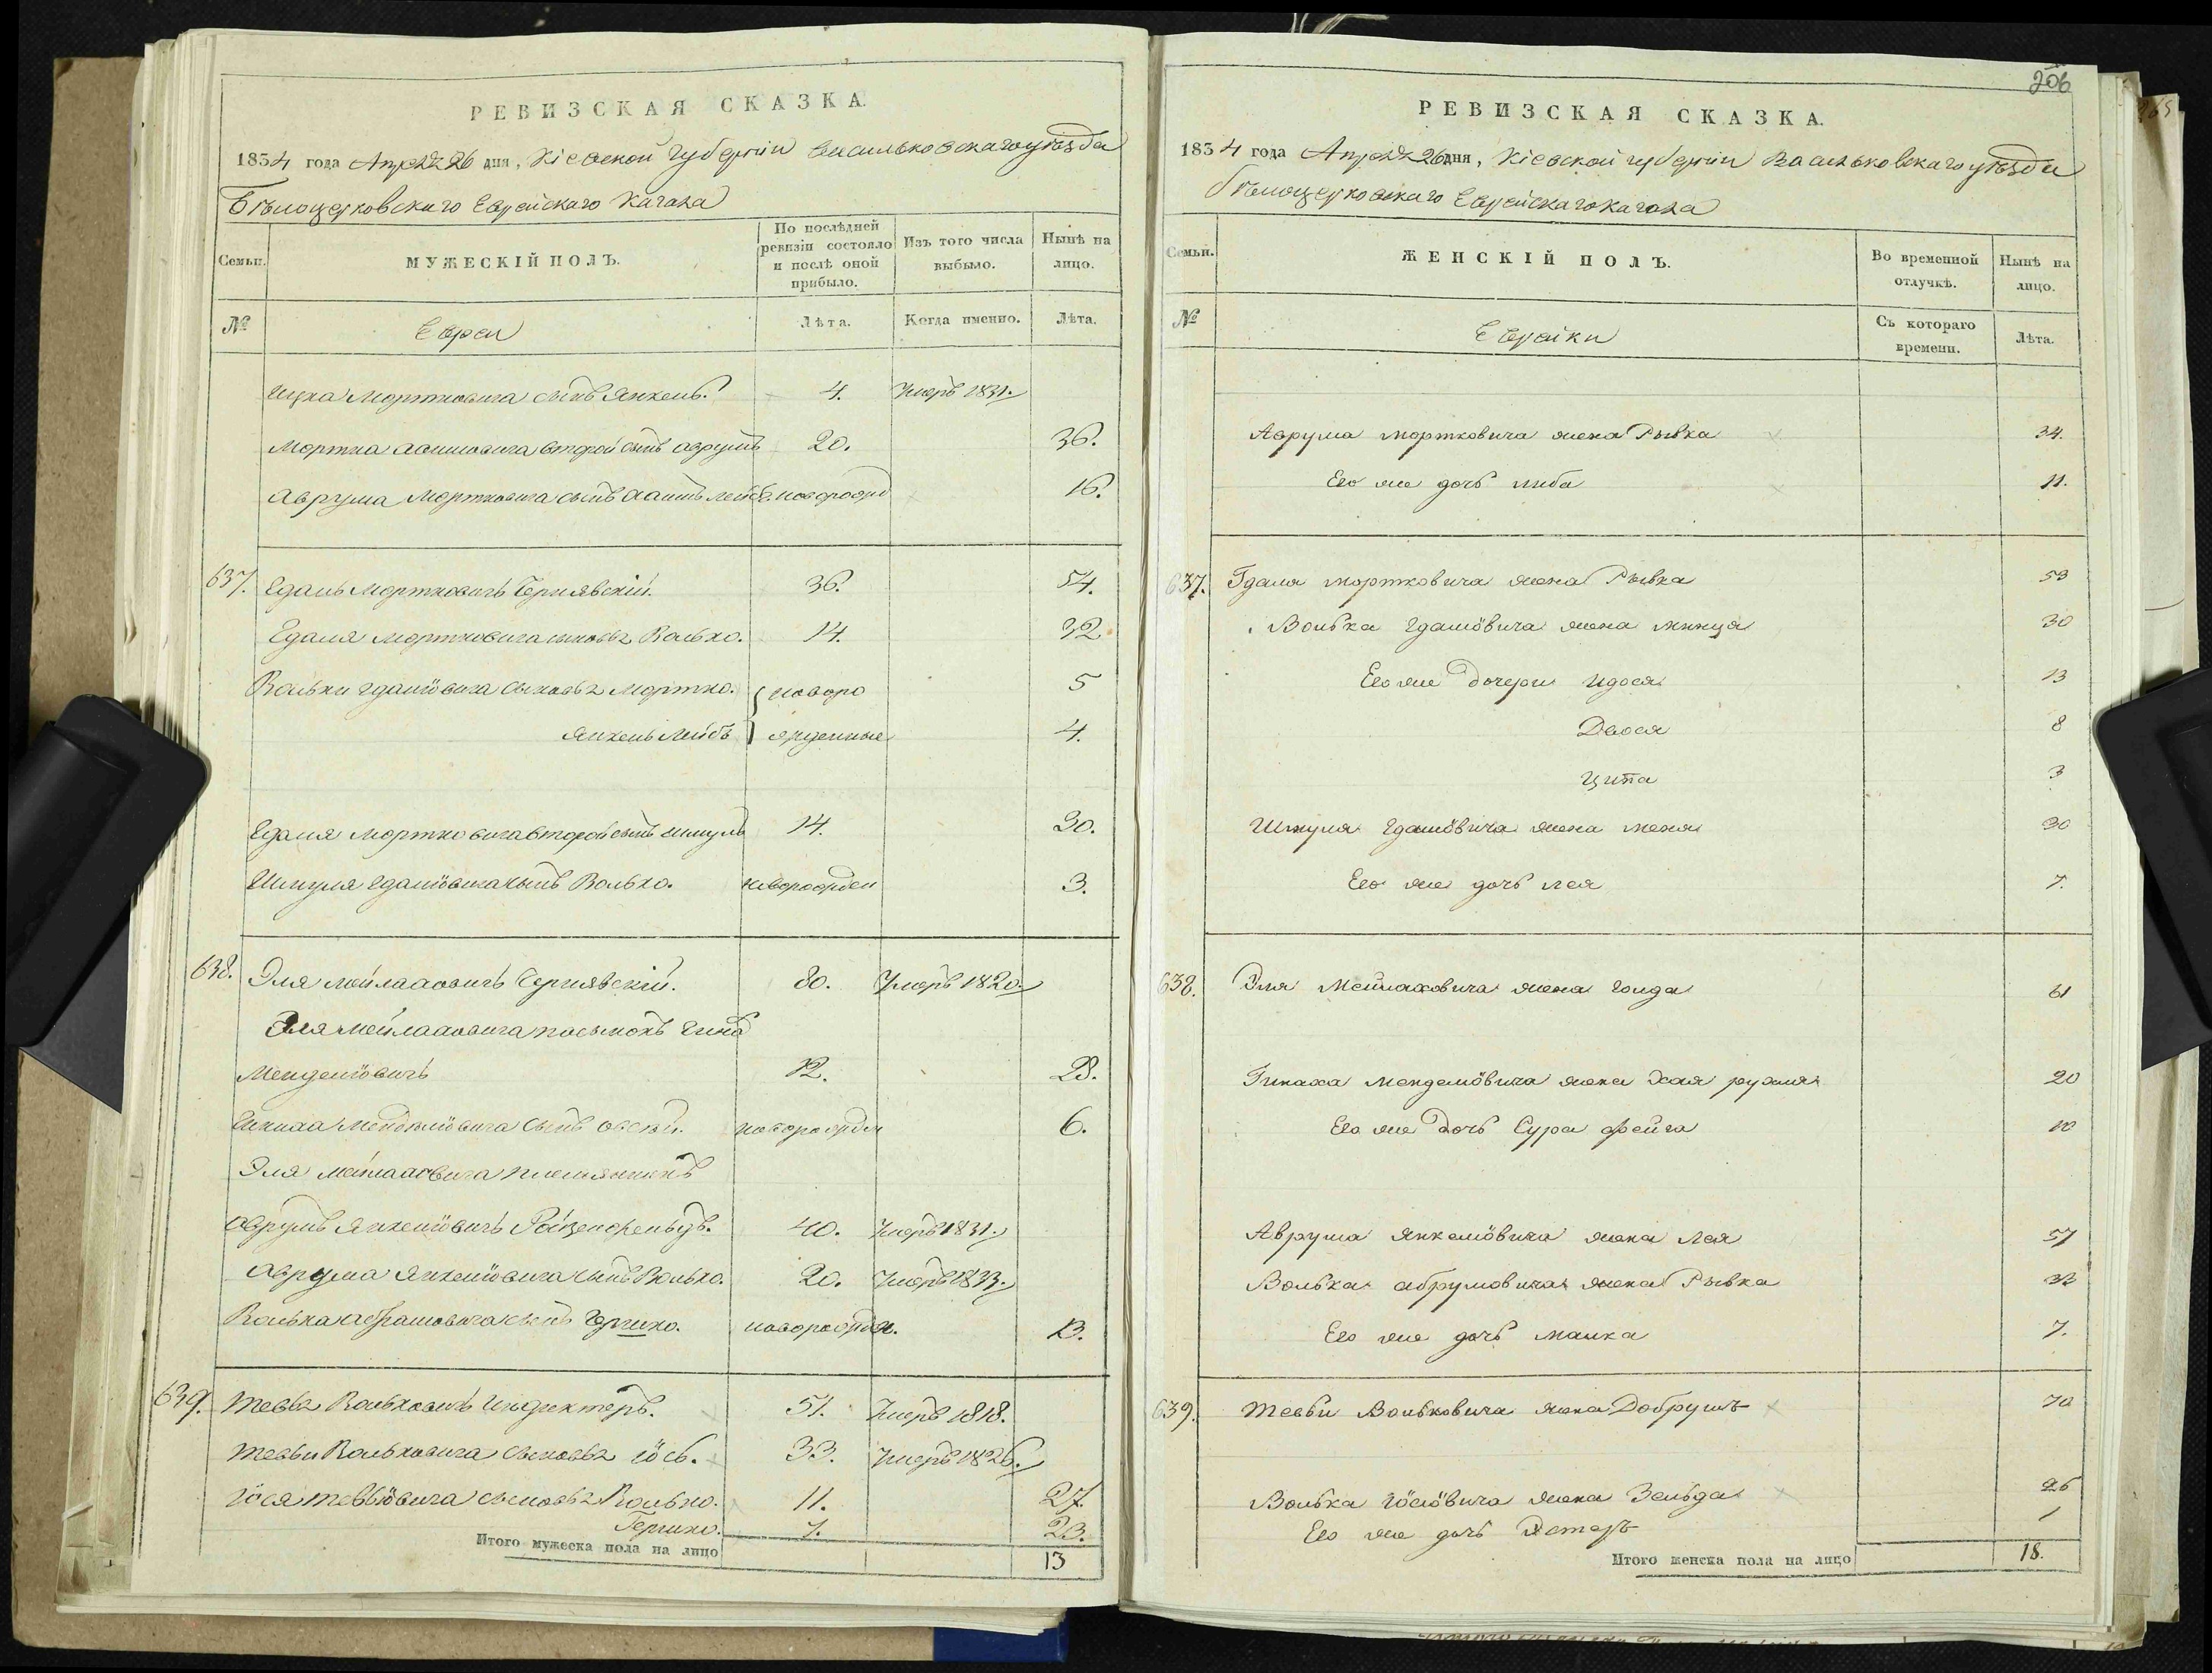 РЕВИЗСКАЯ СКАЗКА.
1834 года Апреля 26 дня, Кіевской Губерніи Васильковскаго уѣзда
Бѣлоцерковскаго Еврейскаго Кагала
Семьи.
МУЖЕСКІЙ ПОЛЪ.
По послѣдней ревизіи состояло и послѣ оной прибыло.
Изъ того числа выбыло.
Нынѣ на лицо.
№
Евреи
Лѣта.
Когда именно.
Лѣта.
Мортковича сынъ Янкель. 4. Умеръ 1831.
Мортка второй сынъ Аврумъ 20. 36.
Аврума Мортковича сынъ Лейба новорожд 16.
637. Гдаль Мортковичъ Чернявскій. 36. 54.
Гдаля Мортковича сыновья Волько. 14. 32
Вольки Гдаліовича сыновья Мортко. новоро 5
Янкель Лейбъ жденные 4.
Гдаля Мортковича второй сынъ Шмуль 14. 30.
Шмуля Гдаліовича сынъ Волько. новорожден 3.
638. Эля Мейлаховичъ Чернявскій. 80. Умеръ 1820.
Эля Мейлаховича пасынокъ
Менделіовичъ 12. 28.
Менделіовича сынъ новорожден 6.
Эля Мейлаховича племянникъ
Аврумъ Янкеліовичъ 40. Умеръ 1831.
Аврума Янкеліовича сынъ Волько. 20. Умеръ 1833.
Волька Абрамовича сынъ Гершко. новорожден. 13.
639. Тевья Вольковичъ 51. Умеръ 1818.
Тевьи Вольковича сыновья Іось. 33. Умеръ 1826.
Іося Тевьіовича сыновья Волько. 11. 27.
Гершко. 7. 23.
Итого мужеска пола на лицо 13
206
РЕВИЗСКАЯ СКАЗКА.
1834 года Апреля 26 дня, Кіевской губерніи Васильковскаго уѣзда
Бѣлоцерковскаго Еврейскаго Кагала
Семьи.
ЖЕНСКІЙ ПОЛЪ.
Во временной отлучкѣ.
Нынѣ на лицо.
№
Еврейки
Съ котораго времени.
Лѣта.
Аврума Мортковича жена Рывка 34.
Его же дочь Либа 11.
637. Гдаля Мортковича жена Рывка 53
Волька Гдаліовича жена Минця 30
Его же дочери Идося 13
Двося 8
Ципа 3
Шмуля Гдаліовича жена Меня 30
Его же дочь Лея 7.
638. Эля Мейлаховича жена Голда 61
Пинхаса Менделіовича жена Хая Рухля 20
Его же дочь Сура Фейга 10
Аврума Янкеліовича жена Лея 57
Волька Абрумовича жена Рывка 33
Его же дочь Малка 7.
639. Тевьи Вольковича жена Добрушъ 70
Волька Іосіовича жена Зельда 26
Его же дочь Эстеръ 1
Итого женска пола на лицо 18.